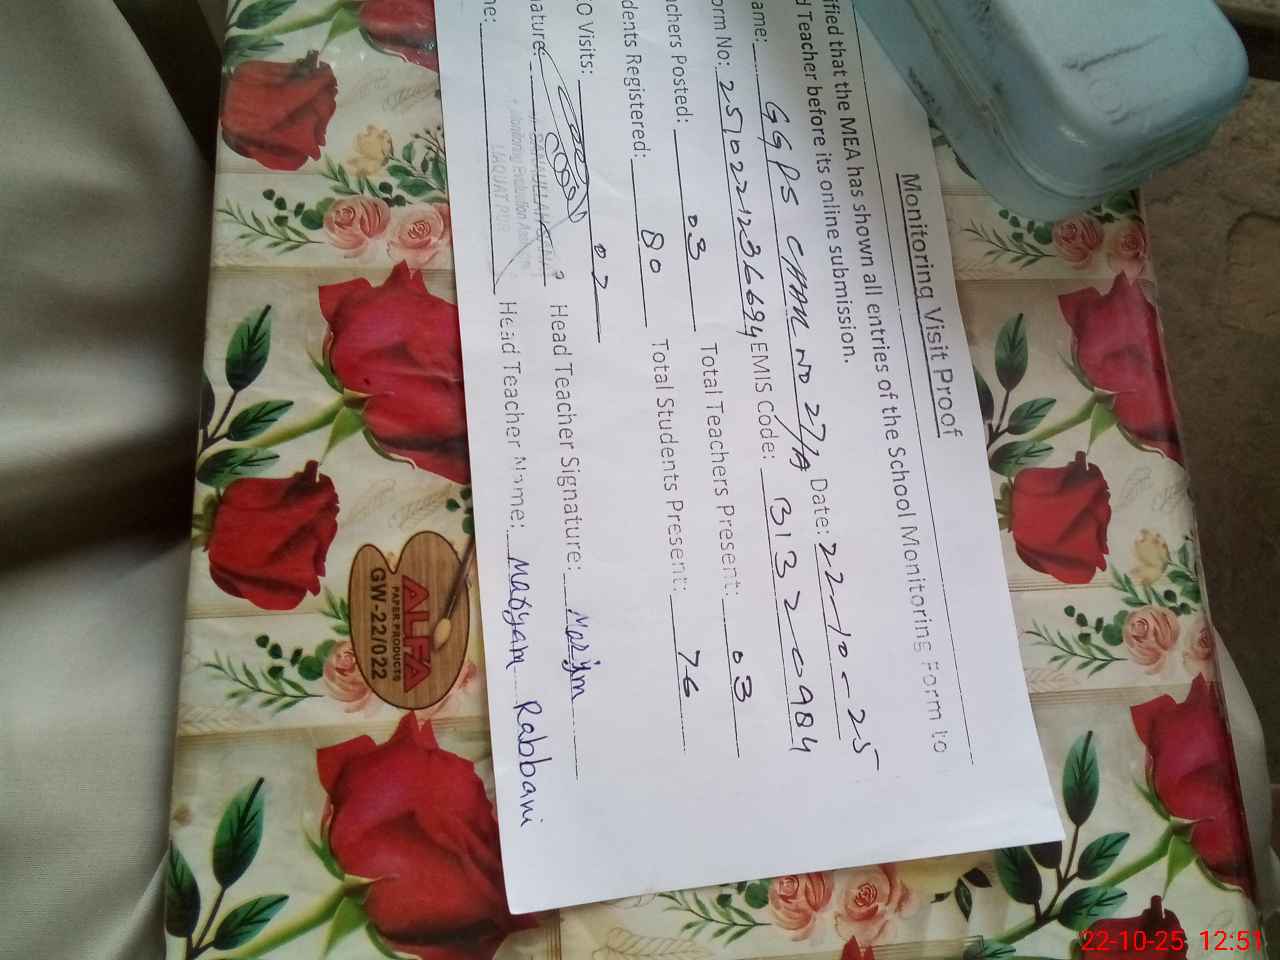 Monitoring Visit Proof
ified that the MEA has shown all entries of the School Monitoring Form to
d Teacher before its online submission.
ame: GGPS CHAK NO 27/A Date: 22-10-25
orm No: EMIS Code: 31320984
achers Posted: 03 Total Teachers Present: 03
dents Registered: 80 Total Students Present: 76
O Visits: 02
nature: Head Teacher Signature: Marym
me: Head Teacher Name: Maryam Rabbani
Monitoring Evaluation
LIAQUAT PUR
ALFA
PAPER PRODUCTS
GW-22/022
22-10-25 12:51